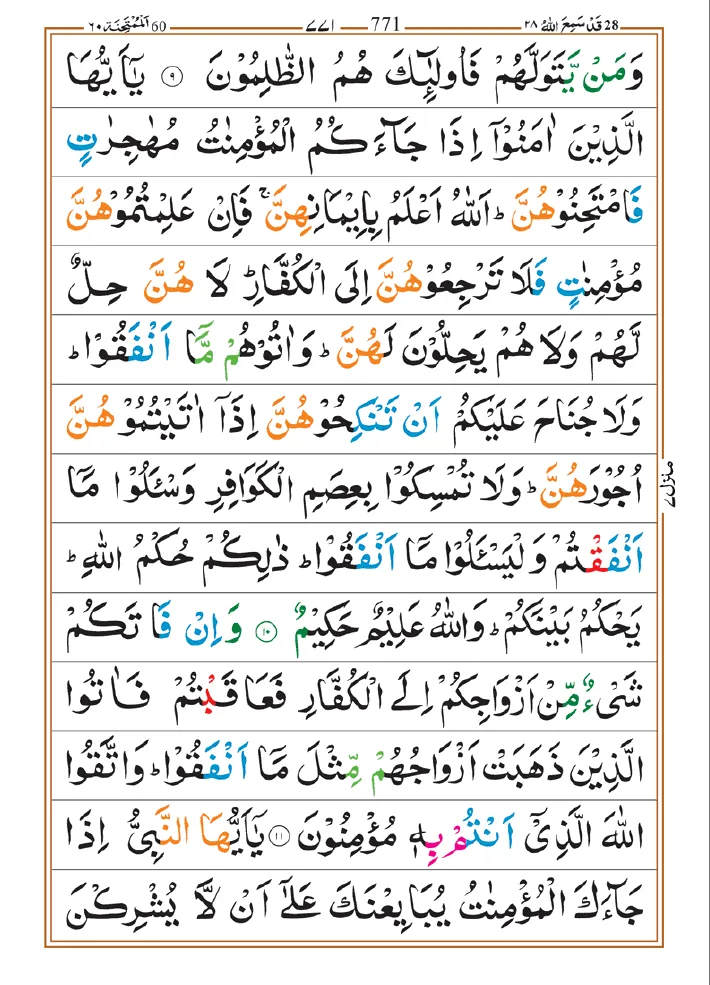 28 قَدۡ سَمِعَ اللهُ ٢٨ 771 ٧٧١ 60 اَلۡمُمۡتَحِنَة ٦٠
وَمَنۡ يَّتَوَلَّهُمۡ فَاُولٰٓئِكَ هُمُ الظّٰلِمُوۡنَ ۹ يٰۤاَيُّهَا
الَّذِيۡنَ اٰمَنُوۡۤا اِذَا جَآءَكُمُ الۡمُؤۡمِنٰتُ مُهٰجِرٰتٍ
فَامۡتَحِنُوۡهُنَّ‌ ؕ اَللّٰهُ اَعۡلَمُ بِاِيۡمَانِهِنَّ‌ ۚ فَاِنۡ عَلِمۡتُمُوۡهُنَّ
مُؤۡمِنٰتٍ فَلَا تَرۡجِعُوۡهُنَّ اِلَى الۡكُفَّارِ‌ ؕ لَا هُنَّ حِلٌّ
لَّهُمۡ وَلَا هُمۡ يَحِلُّوۡنَ لَهُنَّ‌ ؕ وَاٰتُوۡهُمۡ مَّاۤ اَنۡفَقُوۡا‌ ؕ
وَلَا جُنَاحَ عَلَيۡكُمۡ اَنۡ تَنۡكِحُوۡهُنَّ اِذَاۤ اٰتَيۡتُمُوۡهُنَّ
اُجُوۡرَهُنَّ‌ ؕ وَلَا تُمۡسِكُوۡا بِعِصَمِ الۡكَوَافِرِ وَسۡـَٔلُوۡا مَاۤ
اَنۡفَقۡتُمۡ وَلۡيَسۡـَٔلُوۡا مَاۤ اَنۡفَقُوۡا‌ ؕ ذٰلِكُمۡ حُكۡمُ اللّٰهِ‌ ؕ
يَحۡكُمُ بَيۡنَكُمۡ‌ ؕ وَاللّٰهُ عَلِيۡمٌ حَكِيۡمٌ ۱۰ وَاِنۡ فَاتَكُمۡ
شَىۡءٌ مِّنۡ اَزۡوَاجِكُمۡ اِلَى الۡكُفَّارِ فَعَاقَبۡتُمۡ فَاٰتُوا
الَّذِيۡنَ ذَهَبَتۡ اَزۡوَاجُهُمۡ مِّثۡلَ مَاۤ اَنۡفَقُوۡا‌ ؕ وَاتَّقُوا
اللّٰهَ الَّذِىۡۤ اَنۡتُمۡ بِهٖ مُؤۡمِنُوۡنَ ۱۱ يٰۤاَيُّهَا النَّبِىُّ اِذَا
جَآءَكَ الۡمُؤۡمِنٰتُ يُبَايِعۡنَكَ عَلٰٓى اَنۡ لَّا يُشۡرِكۡنَ
منزل ۷